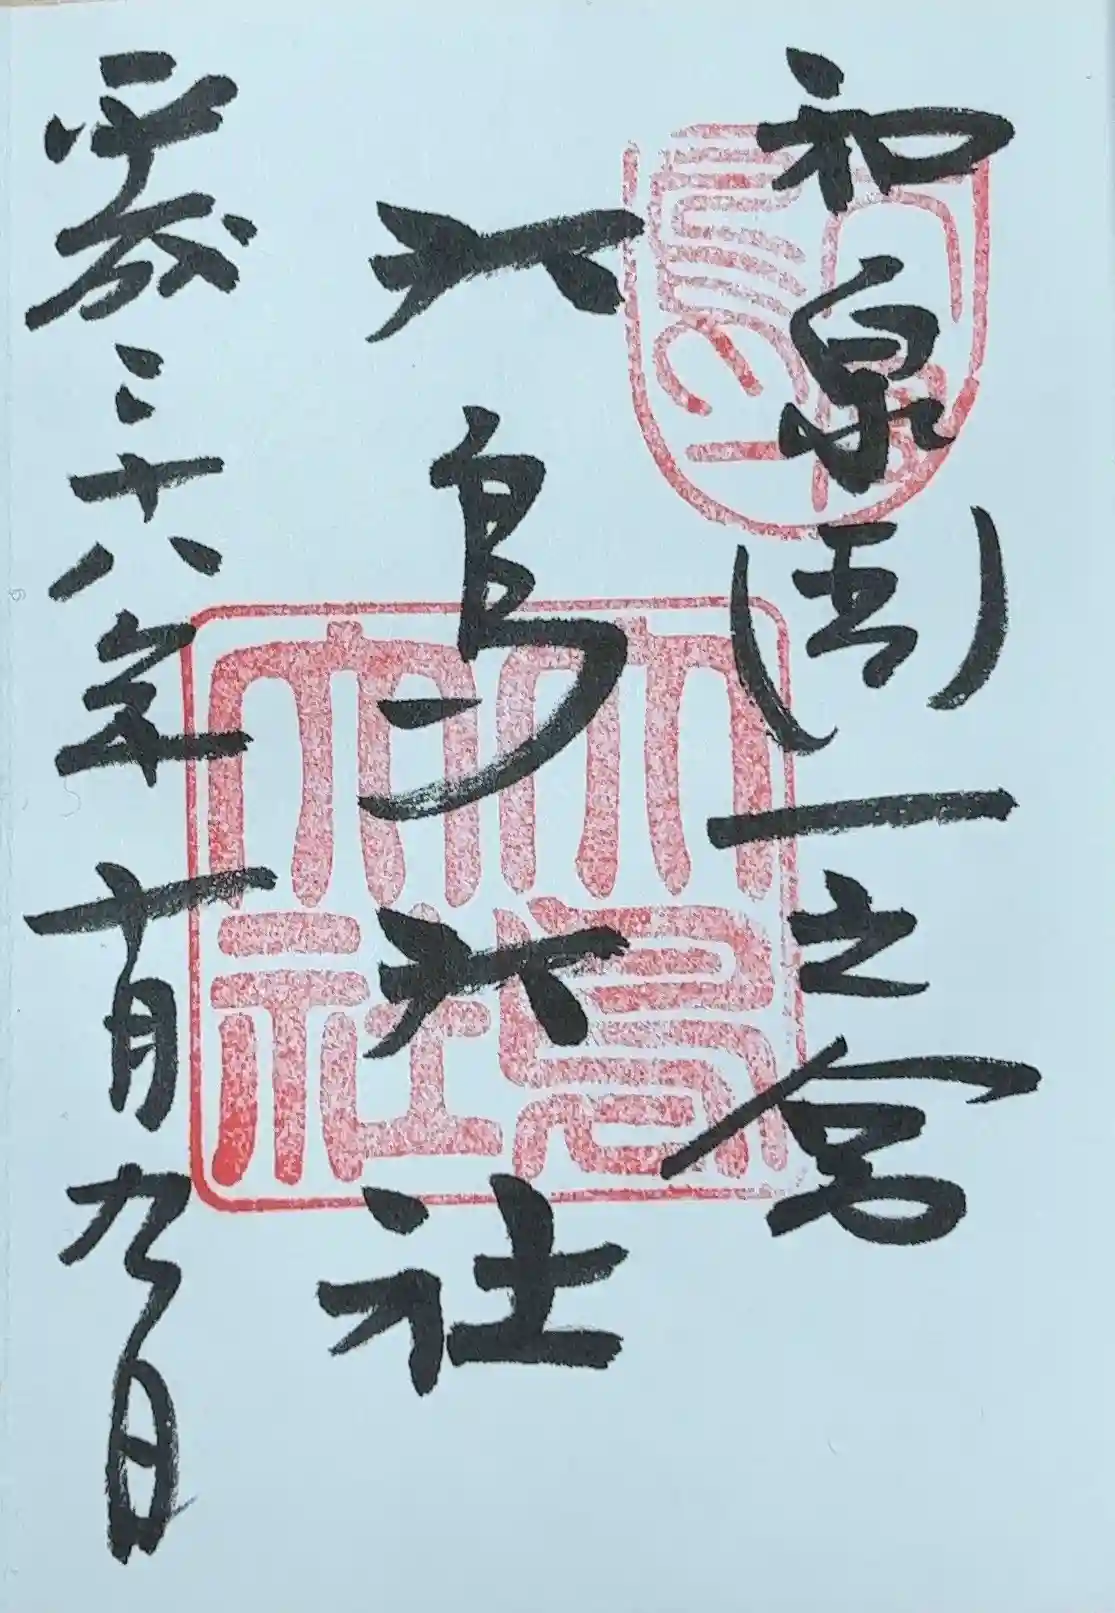 和泉国一之宮
大鳥大社
平成二十八年十月九日
大鳥
大社